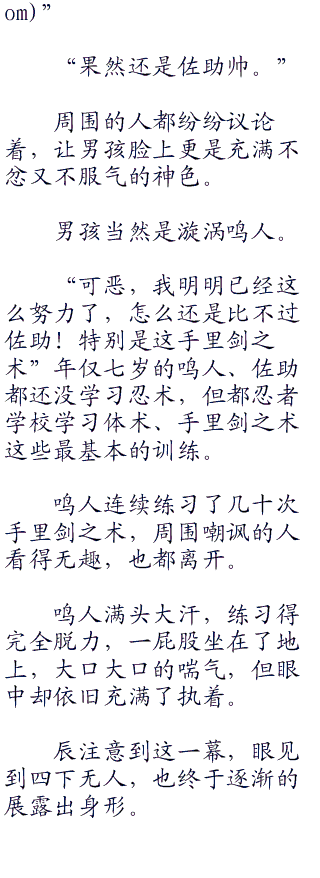 om)”
“果然还是佐助帅。”
周围的人都纷纷议论
着，让男孩脸上更是充满不
忿又不服气的神色。
男孩当然是漩涡鸣人。
“可恶，我明明已经这
么努力了，怎么还是比不过
佐助！特别是这手里剑之
术”年仅七岁的鸣人、佐助
都还没学习忍术，但都忍者
学校学习体术、手里剑之术
这些最基本的训练。
鸣人连续练习了几十次
手里剑之术，周围嘲讽的人
看得无趣，也都离开。
鸣人满头大汗，练习得
完全脱力，一屁股坐在了地
上，大口大口的喘气，但眼
中却依旧充满了执着。
辰注意到这一幕，眼见
到四下无人，也终于逐渐的
展露出身形。